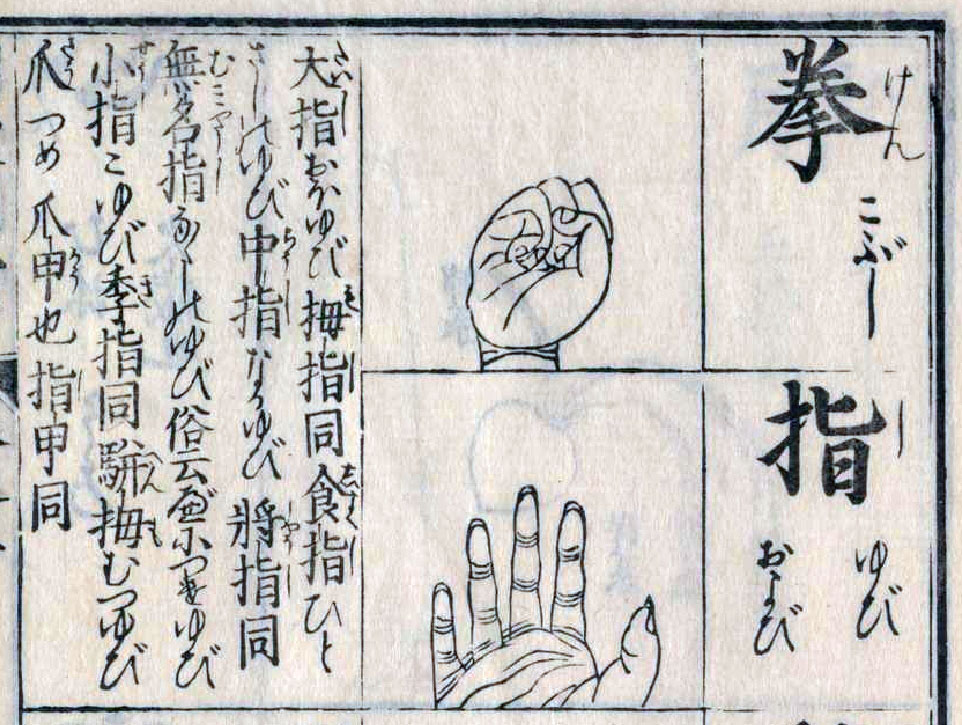 拳 けん こぶし
指 し ゆび および
大指おほゆび 拇指同 食指ひと
さしのゆび 中指なかゆび 將指同
無名指ななしのゆび俗云べにつけゆび
小指こゆび 季指同 駢拇むつゆび
爪つめ 爪甲也 指甲同